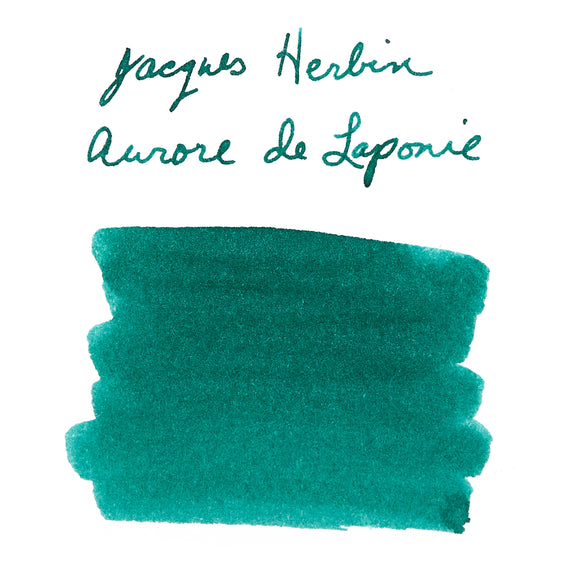 Jacques Herbin
Aurore de Laponie